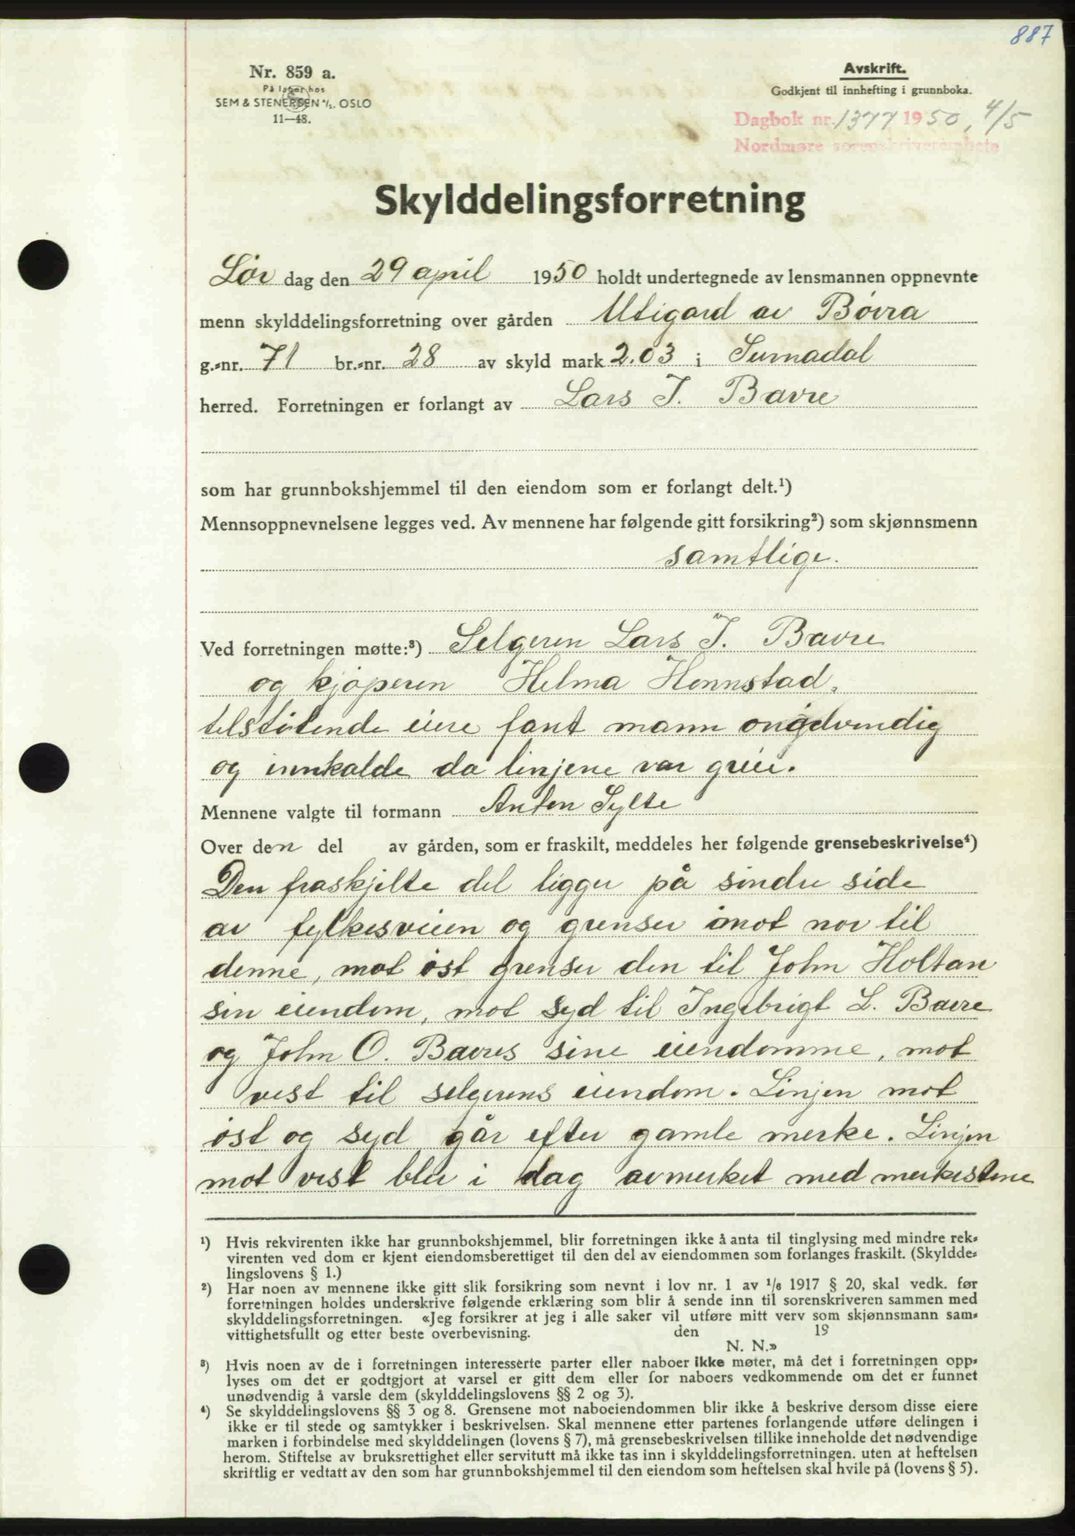 887
Nr. 859 a.
På lager hos
SEM & STENERSEN A/S. OSLO
11—48.
Avskrift.
Godkjent til innhefting i grunnboka.
Dagbok nr. 1377 1950, 4/5
Nordmøre sorenskriverembete
Skylddelingsforretning
Lør dag den 29 april 1950 holdt undertegnede av lensmannen oppnevnte
menn skylddelingsforretning over gården Utigard av Bøvra
g.-nr. 71 br.-nr. 28 av skyld mark 2.03 i Surnadal
herred. Forretningen er forlangt av Lars J. Bævre
som har grunnbokshjemmel til den eiendom som er forlangt delt.¹)
Mennsoppnevnelsene legges ved. Av mennene har følgende gitt forsikring²) som skjønnsmenn
samtlige.
Ved forretningen møtte:³) Selgeren Lars J. Bævre
og kjøperen Helma Hennstad,
tilstøtende eiere fant mann onødvendig
og innkalde da linjene var greie.
Mennene valgte til formann Anton Sylte
Over den del av gården, som er fraskilt, meddeles her følgende grensebeskrivelse⁴)
Den fraskjelte del ligger på sindre side
av fylkesveien og grenser imot nor til
denne, mot øst grenser den til John Holtan
sin eiendom, mot syd til Ingebrigt L. Bævre
og John O. Bævres sine eiendomme, mot
vest til selgerens eiendom. Linjen mot
øst og syd går efter gamle merke. Linjen
mot vest blei i dag avmerket med merkestene
¹) Hvis rekvirenten ikke har grunnbokshjemmel, blir forretningen ikke å anta til tinglysing med mindre rek-
virenten ved dom er kjent eiendomsberettiget til den del av eiendommen som forlanges fraskilt. (Skyldde-
lingslovens § 1.)
²) Har noen av mennene ikke gitt slik forsikring som nevnt i lov nr. 1 av ¹/₆ 1917 § 20, skal vedk. før
forretningen holdes underskrive følgende erklæring som blir å sende inn til sorenskriveren sammen med
skylddelingsforretningen. «Jeg forsikrer at jeg i alle saker vil utføre mitt verv som skjønnsmann sam-
vittighetsfullt og etter beste overbevisning. den 19
N. N.»
³) Hvis noen av de i forretningen interesserte parter eller naboer ikke møter, må det i forretningen opp-
lyses om det er godtgjort at varsel er gitt dem eller for naboers vedkommende om det er funnet
unødvendig å varsle dem (skylddelingslovens §§ 2 og 3).
⁴) Se skylddelingslovens §§ 3 og 8. Grensene mot naboeiendommen blir ikke å beskrive dersom disse eiere
ikke er til stede og samtykker i beskrivelsen. Skal mennene etter partenes forlangende utføre delingen i
marken i forbindelse med skylddelingen (lovens § 7), må grensebeskrivelsen tillike inneholde det nødvendige
herom. Stiftelse av bruksrettighet eller servitutt må ikke tas inn i skylddelingsforretningen, uten at heftelsen
skriftlig er vedtatt av den som har grunnbokshjemmel til den eiendom som heftelsen skal hvile på (lovens § 5).